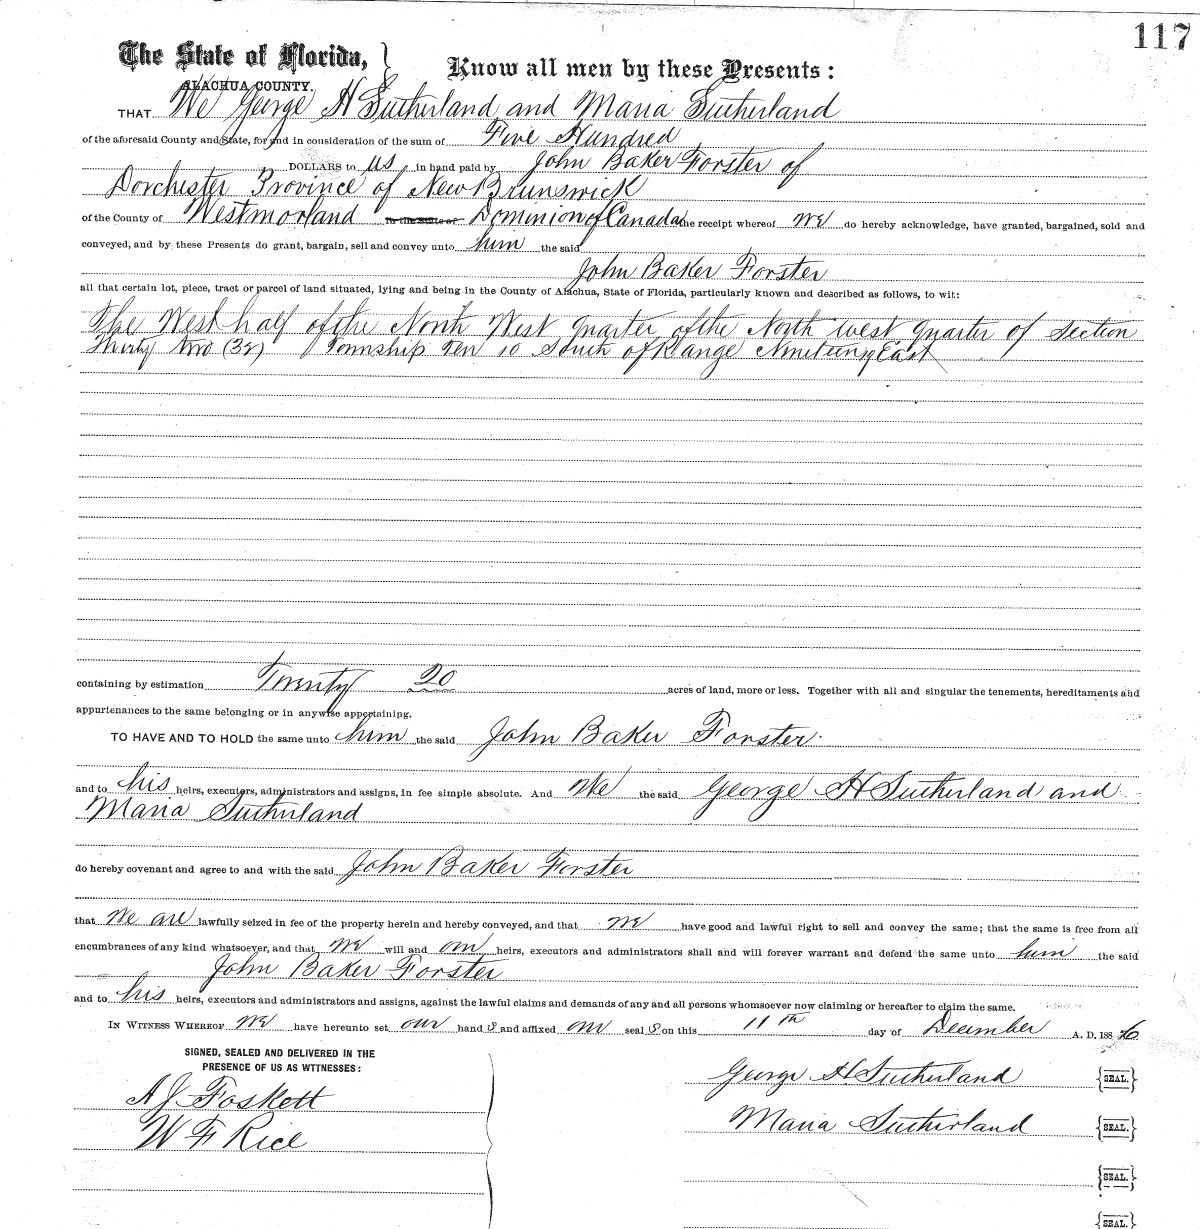 117
The State of Florida, } Know all men by these Presents :
ALACHUA COUNTY.
THAT We George H Sutherland and Maria Sutherland
of the aforesaid County and State, for and in consideration of the sum of Five Hundred
DOLLARS to us in hand paid by John Baker Forster of
Dorchester Province of New Brunswick
of the County of Westmorland in the State of Dominion of Canada the receipt whereof we do hereby acknowledge, have granted, bargained, sold and
conveyed, and by these Presents do grant, bargain, sell and convey unto him the said
John Baker Forster
all that certain lot, piece, tract or parcel of land situated, lying and being in the County of Alachua, State of Florida, particularly known and described as follows, to wit:
The West half of the North West quarter of the North west quarter of Section
Thirty two (32) Township Ten 10 South of Range Nineteen East
containing by estimation Twenty 20 acres of land, more or less. Together with all and singular the tenements, hereditaments and
appurtenances to the same belonging or in anywise appertaining.
TO HAVE AND TO HOLD the same unto him the said John Baker Forster.
and to his heirs, executors, administrators and assigns, in fee simple absolute. And We the said George H Sutherland and
Maria Sutherland
do hereby covenant and agree to and with the said John Baker Forster
that we are lawfully seized in fee of the property herein and hereby conveyed, and that we have good and lawful right to sell and convey the same; that the same is free from all
encumbrances of any kind whatsoever, and that we will and our heirs, executors and administrators shall and will forever warrant and defend the same unto him the said
John Baker Forster
and to his heirs, executors and administrators and assigns, against the lawful claims and demands of any and all persons whomsoever now claiming or hereafter to claim the same.
IN WITNESS WHEREOF we have hereunto set our hand s and affixed our seal s on this 11th day of December A. D. 1886
SIGNED, SEALED AND DELIVERED IN THE
PRESENCE OF US AS WITNESSES:
George H Sutherland {SEAL.}
A J Foskett
Maria Sutherland {SEAL.}
W F Rice
{SEAL.}
{SEAL.}